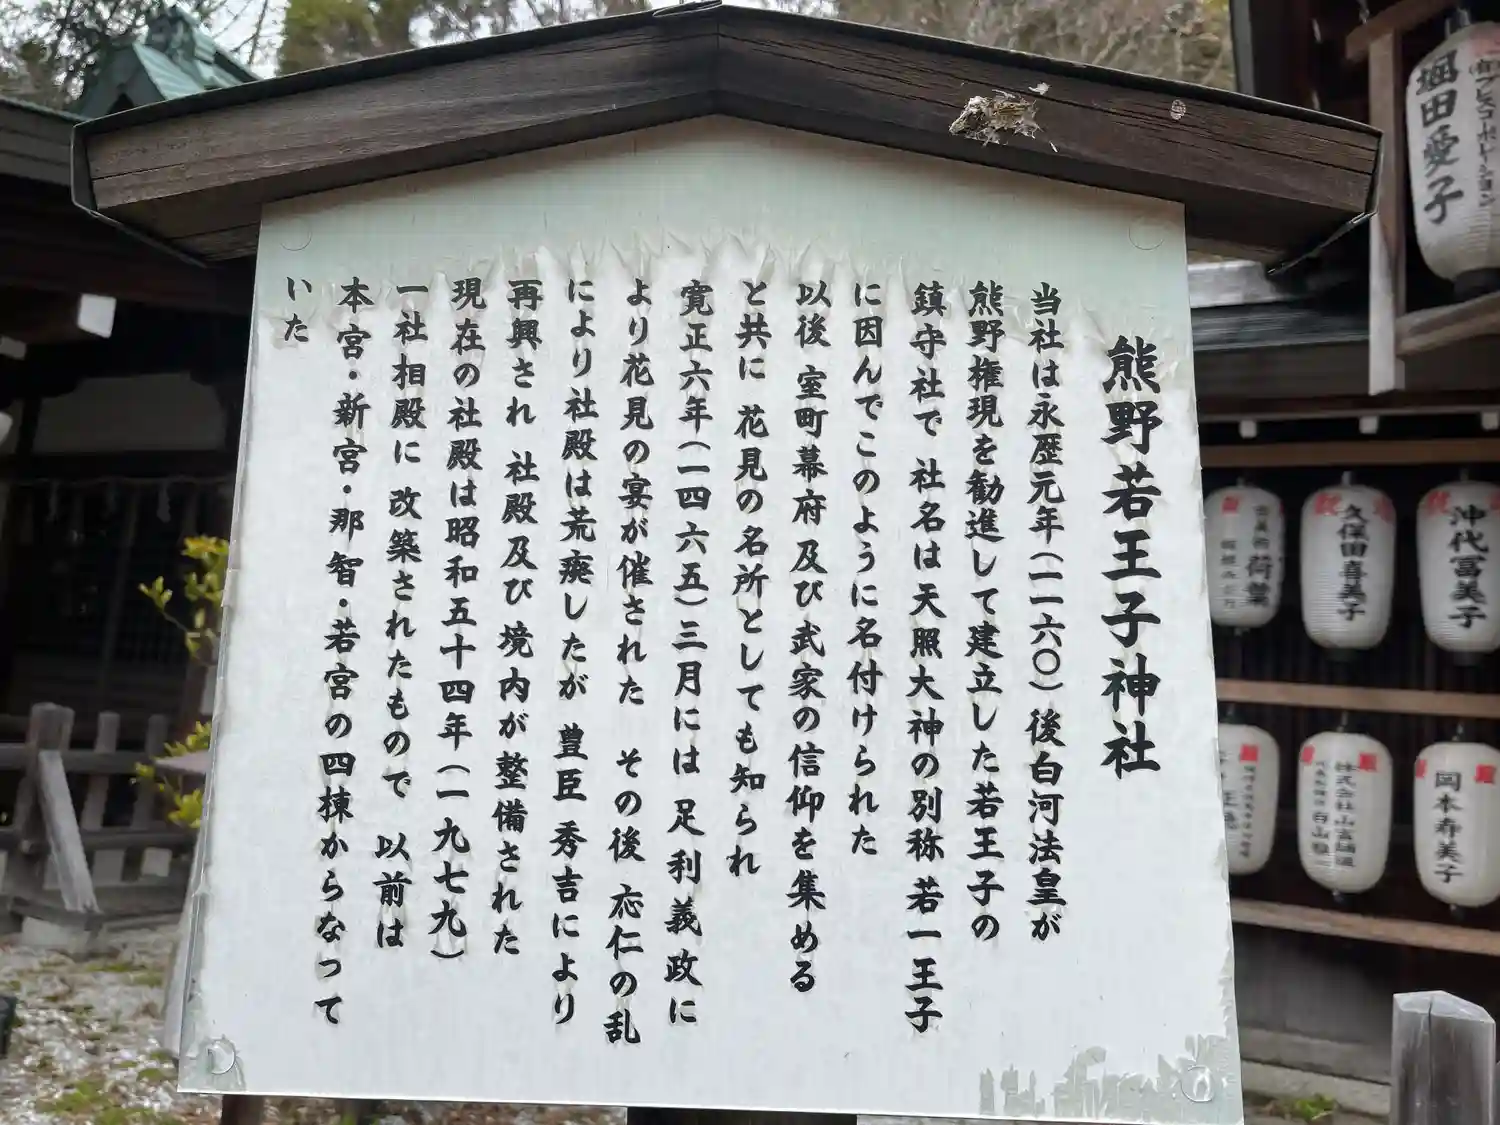 熊野若王子神社
当社は永歴元年(一一六〇)後白河法皇が
熊野権現を勧進して建立した若王子の
鎮守社で 社名は天照大神の別称 若一王子
に因んでこのように名付けられた
以後 室町幕府及び武家の信仰を集める
と共に 花見の名所としても知られ
寛正六年(一四六五)三月には 足利義政に
より花見の宴が催された その後 応仁の乱
により社殿は荒廃したが 豊臣秀吉により
再興され 社殿及び境内が整備された
現在の社殿は昭和五十四年(一九七九)
一社相殿に 改築されたもので 以前は
本宮・新宮・那智・若宮の四棟からなって
いた
堀田愛子
久保田喜美子
沖代冨美子
岡本寿美子